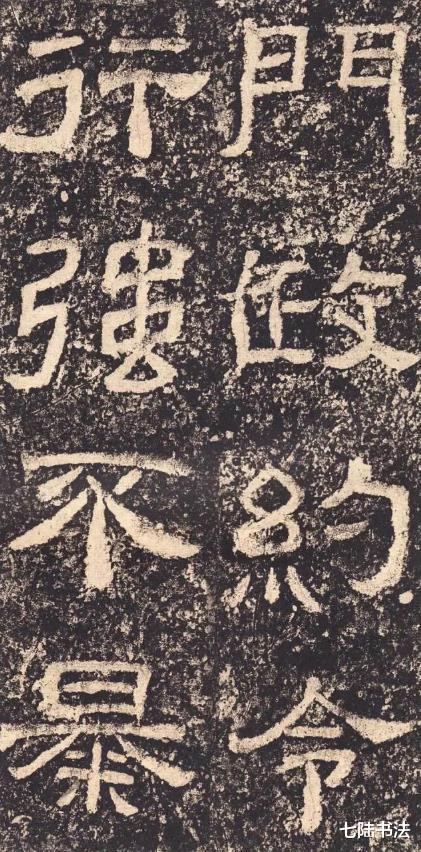 門政約令
行強不暴
七陆书法